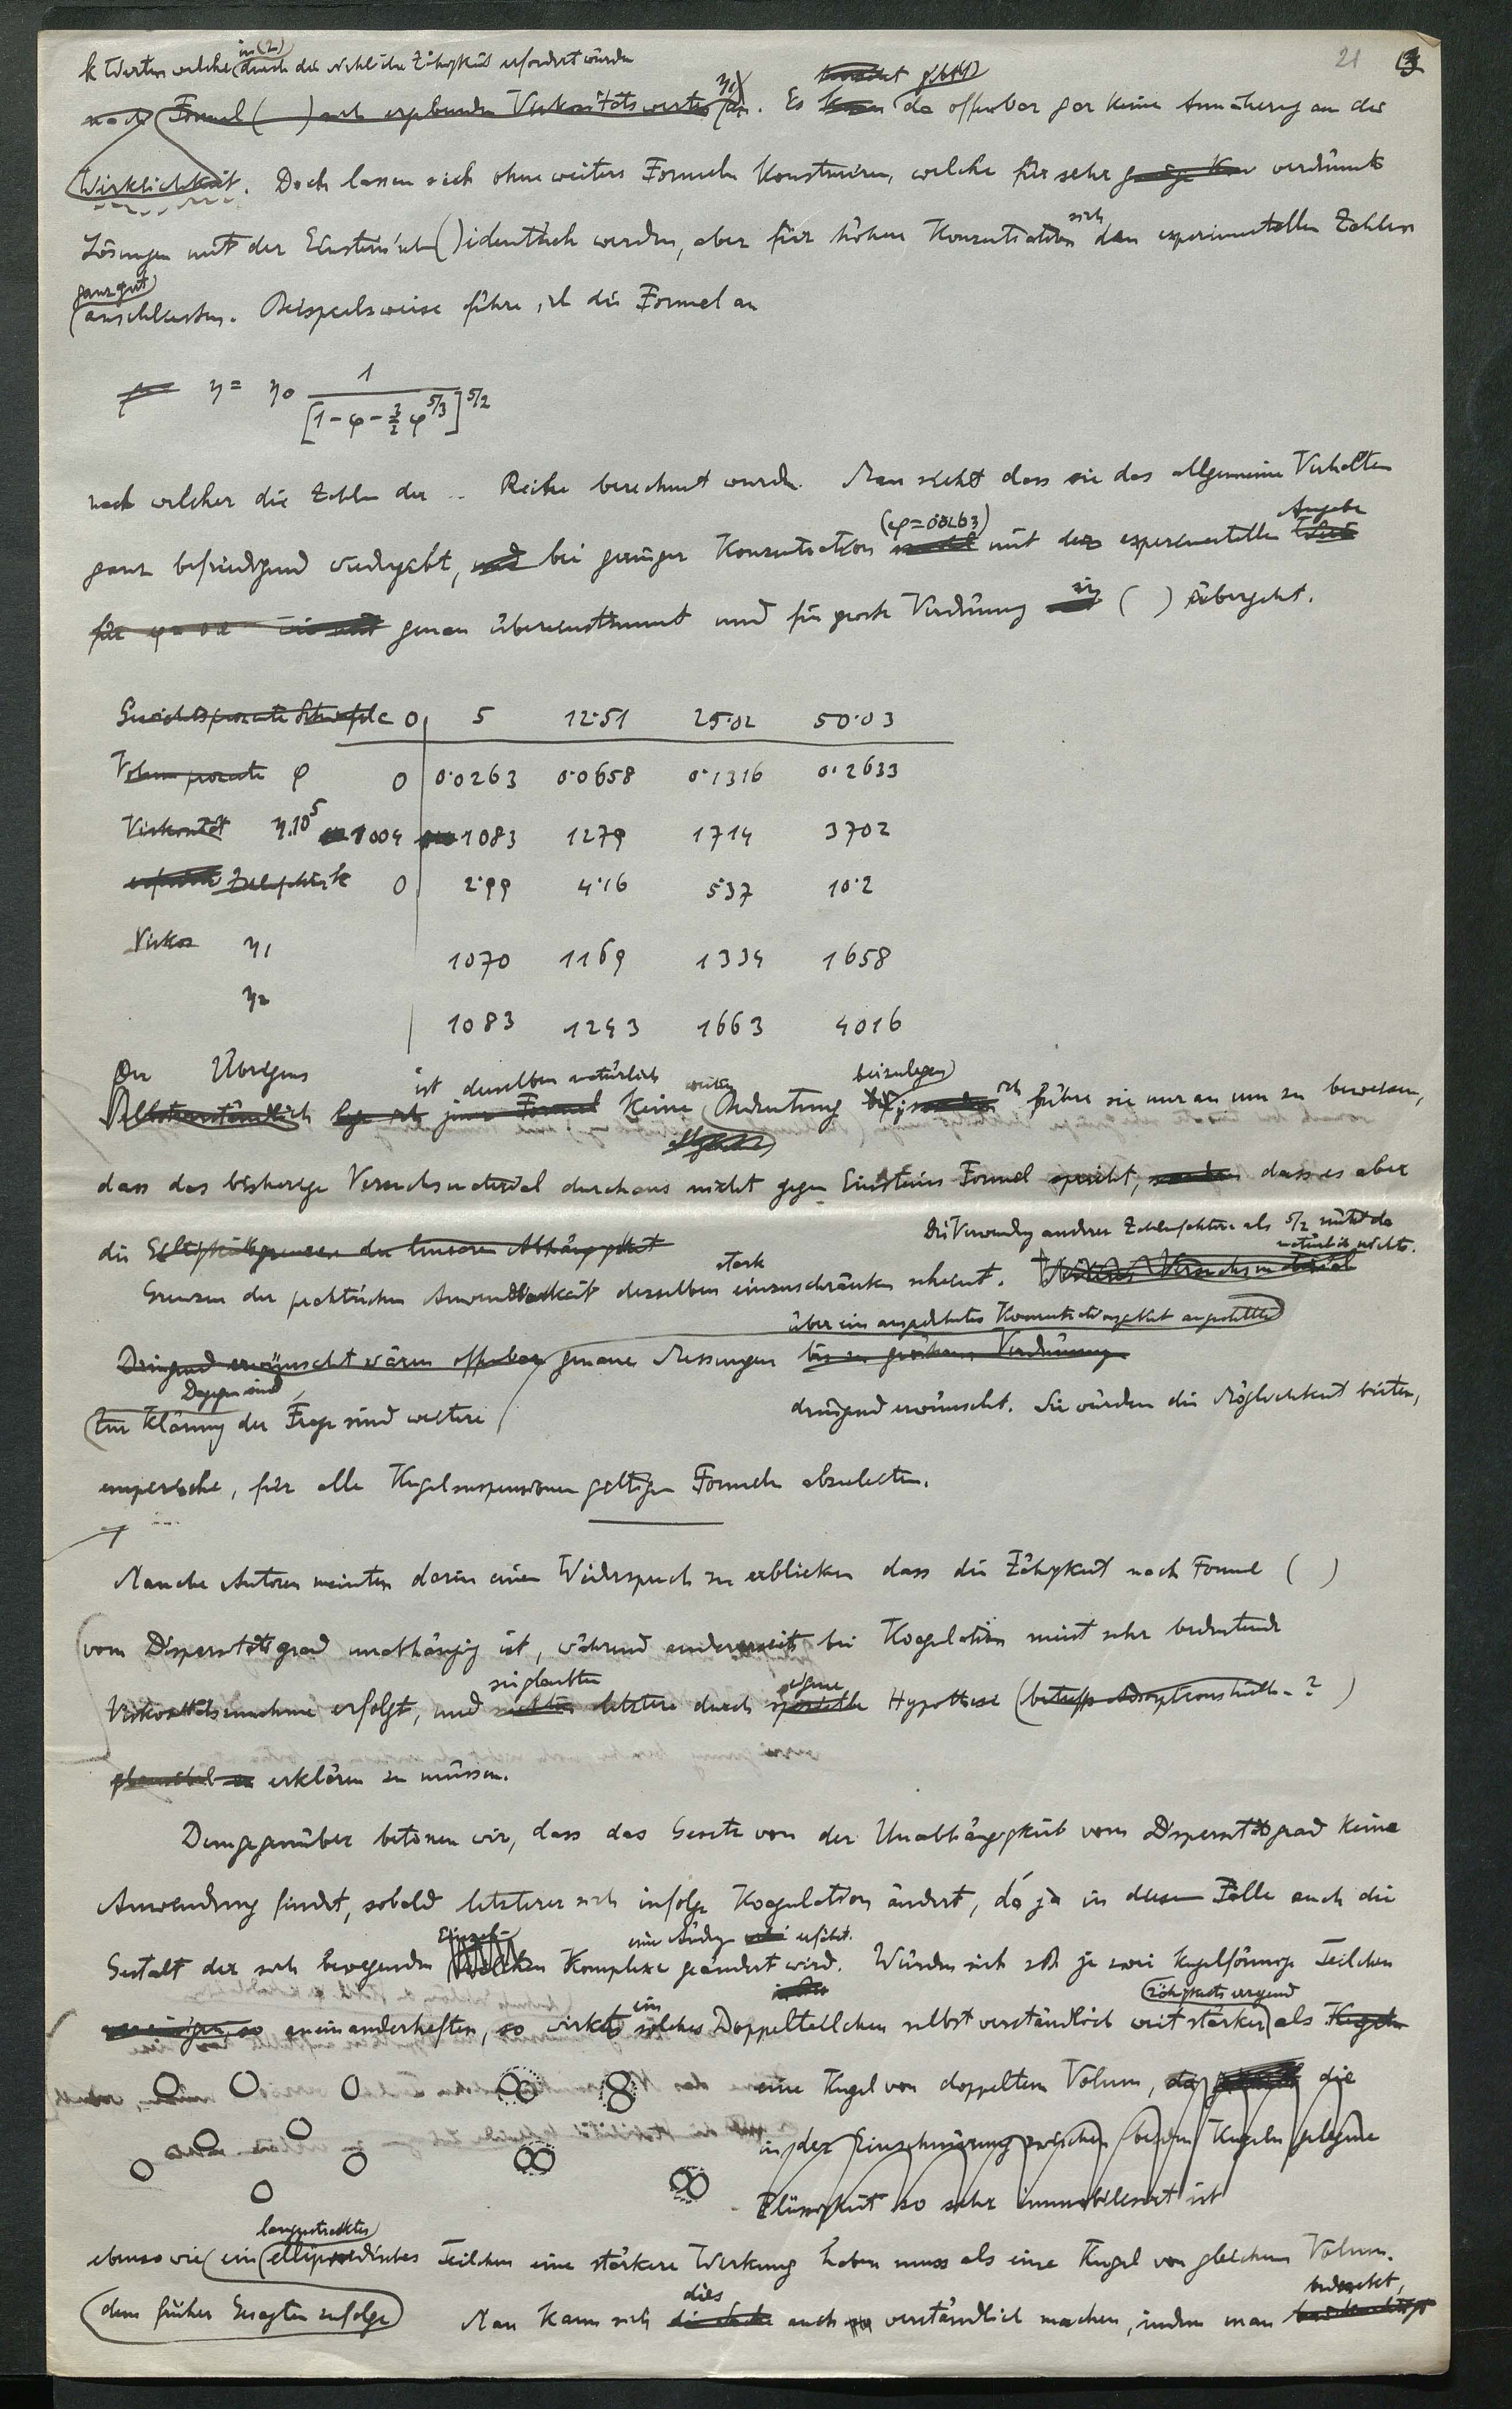 k Werten welche in (2) durch die wirkliche Zähigkeit erfordert würden
21 3
nach Formel ( ) sich ergebenden Viskositätswerte η1 an. Es gibt da offenbar gar keine Annäherung an die
Wirklichkeit. Doch lassen sich ohne weiters Formeln konstruiren, welche für sehr verdünnte
Lösungen mit der Einstein'schen ( ) identisch werden, aber für höhere Konzentration sich den experimentellen Zahlen
ganz gut
anschliessen. Beispielsweise führe ich die Formel an
η = η0 1 / [1 - φ - 3/2 φ^5/3]^5/2
nach welcher die Zahlen der .. Reihe berechnet wurde. Man sieht dass sie das allgemeine Verhalten
ganz befriedigend wiedergibt, und bei geringer Konzentration (φ=0·0263) mit der experimentellen Angabe
für φ = genau übereinstimmt und für grosse Verdünnung in ( ) übergeht.
Gewichtsprozente Schwefel c 0 5 12·51 25·02 50·03
Volumprozente φ 0 0·0263 0·0658 0·1316 0·2633
Viskosität η.10^5 1004 1083 1279 1714 3702
Zahlenfaktor k 0 2·99 4·16 5·37 10·2
Viskos η1 1070 1169 1334 1658
η2 1083 1243 1663 4016
Übrigens ist derselben natürlich weiter beizulegen
Selbstverständlich lege ich jener Formel keine Bedeutung ich führe sie nur an um zu beweisen,
dass das bisherige Versuchsmaterial durchaus nicht gegen Einsteins Formel spricht, sondern dass es aber
die Giltigkeitsgrenzen der linearen Abhängigkeit
Die Verwendung anderer Zahlenfaktoren als 5/2 nützt da natürlich nichts.
Grenzen der praktischen Anwendbarkeit derselben stark einzuschränken scheint. Weiteres Versuchsmaterial
über ein ausgedehntes Konzentrationsgebiet angestellte
Dringend erwünscht wären offenbar genaue Messungen bis zu grösseren Verdünnung
Dagegen sind
Zur Klärung der Frage sind weitere dringend erwünscht. Sie würden die Möglichkeit bieten,
empirische, für alle Kugelsuspensionen giltigen Formeln abzuleiten.
Manche Autoren meinten darin einen Widerspruch zu erblicken dass die Zähigkeit nach Formel ( )
vom Dispersitätsgrad unabhängig ist, während andererseits bei Koagulation meist sehr bedeutende
Viskositätszunahme erfolgt, und sie glaubten letztere durch eigene spezielle Hypothese (betreffs Adsorptionshülle - ? )
erklären zu müssen.
Demgegenüber betonen wir, dass das Gesetz von der Unabhängigkeit vom Dispersitätsgrad keine
Anwendung findet, sobald letzterer sich infolge Koagulation ändert, da ja in diesem Falle auch die
Gestalt der sich bewegenden Einzel- Komplexe eine Änderung erfährt. geändert wird. Würden sich zB je zwei kugelförmige Teilchen
vereinigen, so aneinanderheften, so wirkt ein solches Doppelteilchen selbstverständlich weit stärker zähigkeitssteigernd als Kugeln
eine Kugel von doppeltem Volum, da die
in der Einschnürung zwischen beiden Kugeln gelegene
Flüssigkeit so sehr immobilisiert ist
ebenso wie ein langgestrecktes ellipsoidisches Teilchen eine stärkere Wirkung haben muss als eine Kugel von gleichem Volum.
dem früher Gesagten zufolge Man kann sich dies die Sache auch so verständlich machen, indem man bedenkt, berücksichtigt